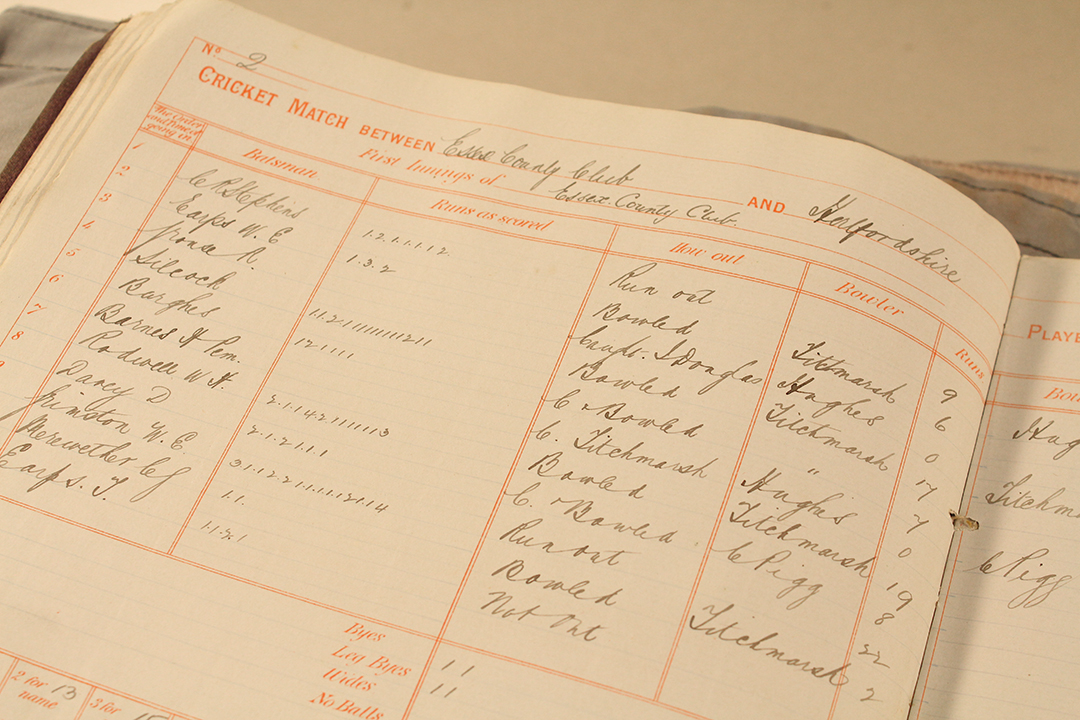 No 2
CRICKET MATCH BETWEEN Essex County Club AND Hertfordshire
First Innings of Essex County Club.
The Order and time of going in Batsman Runs as scored How out Bowler Runs
1 C R Stephens 1.2.1.1.1.1.2. Run out 9
2 Earps W. E 1.3.2 Bowled Titchmarsh 6
3 A. Caught. I Douglas Hughes 0
4 Silcock 1.1.2.1.1.1.1.1.1.1.2.1.1 Bowled Titchmarsh 17
5 Burghes 1 2 1.1.1.1 C & Bowled " 7
6 Barnes H Pem. C. Titchmarsh Hughes 0
7 Rodwell W H 2.1.1.4.2.1.1.1.1.1.1.3 Bowled Titchmarsh 19
8 Darcy D 2.1.2.1.1.1 C. & Bowled C Pigg 8
Grimston W. E. 3.1.1.2.2.1.1.1.1.1.2.1.1.4 Run out 22
Merewether C G 1.1. Bowled Titchmarsh 2
Earps. T. Not Out
Byes 1 1
Leg Byes 1 1
Wides
No Balls
2 for 13
name
3 for 15
PLAYE
Bou
Hug
Titchm
C Pigg